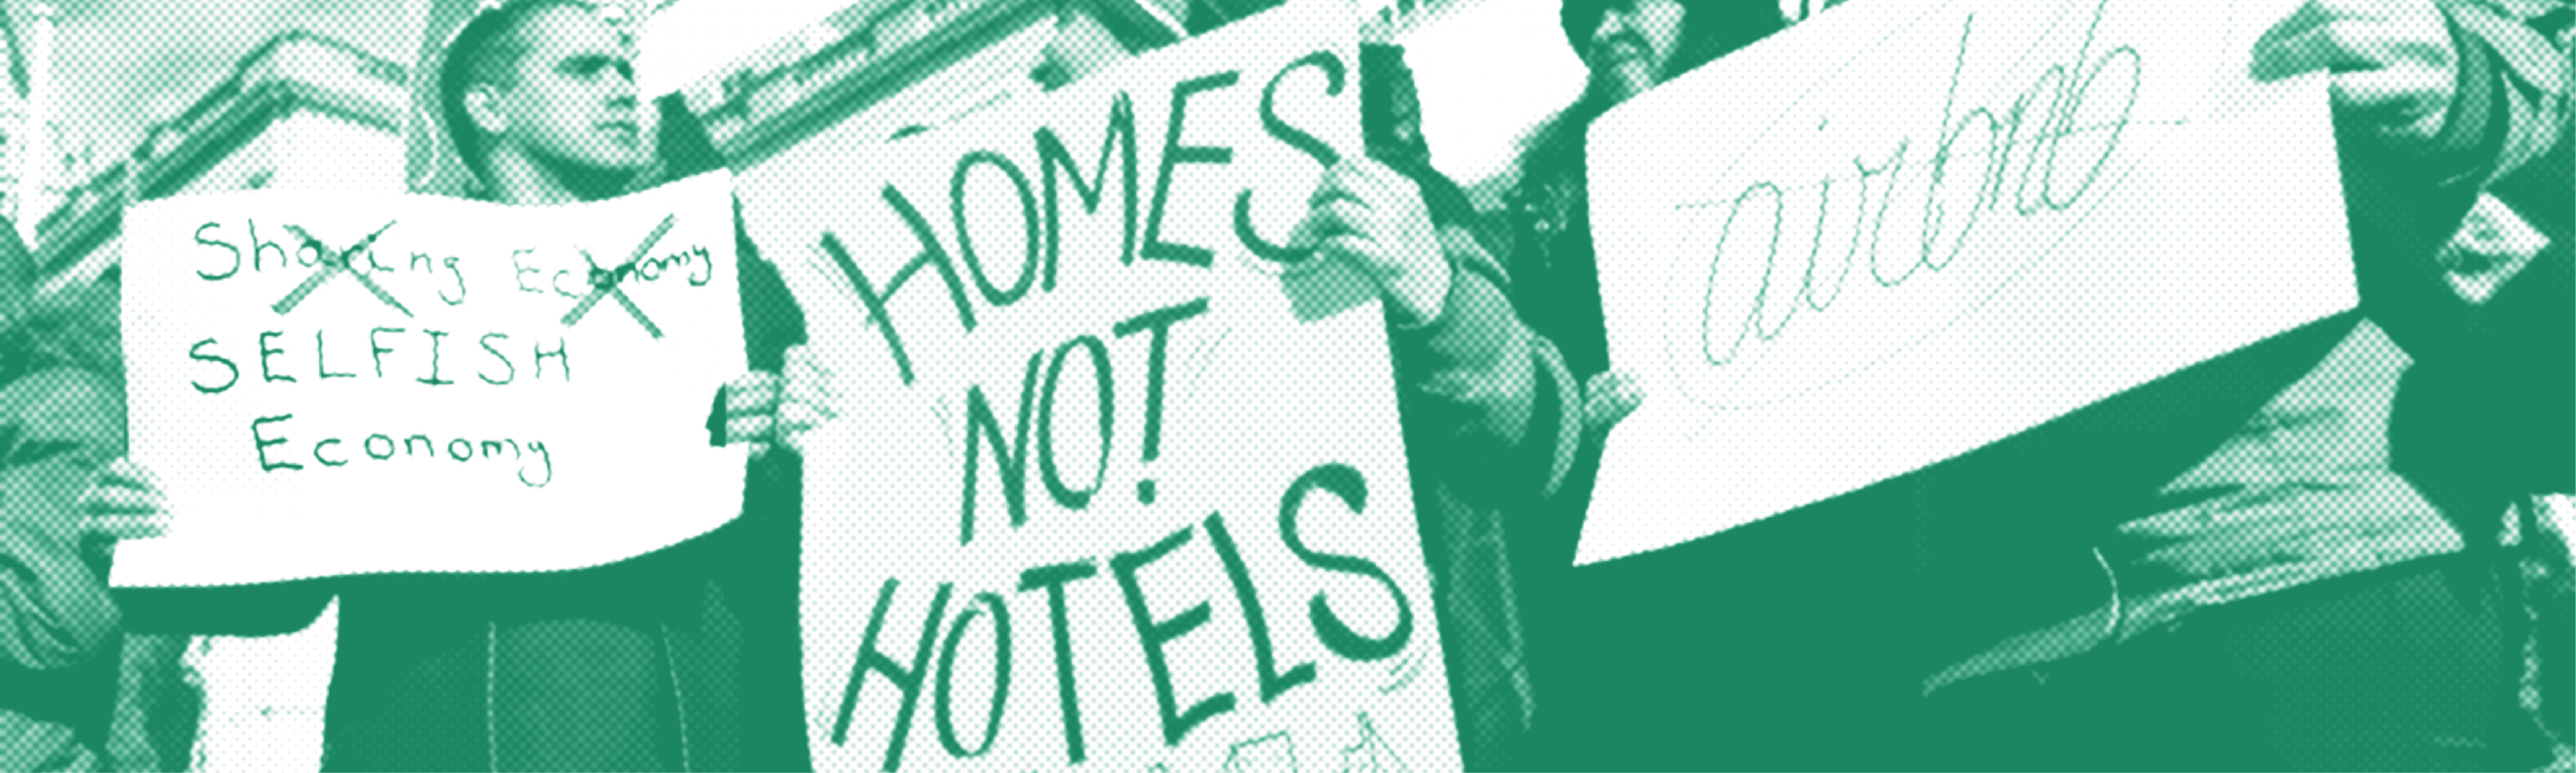 Sharing Economy
SELFISH
Economy
HOMES
NOT
HOTELS
airbnb